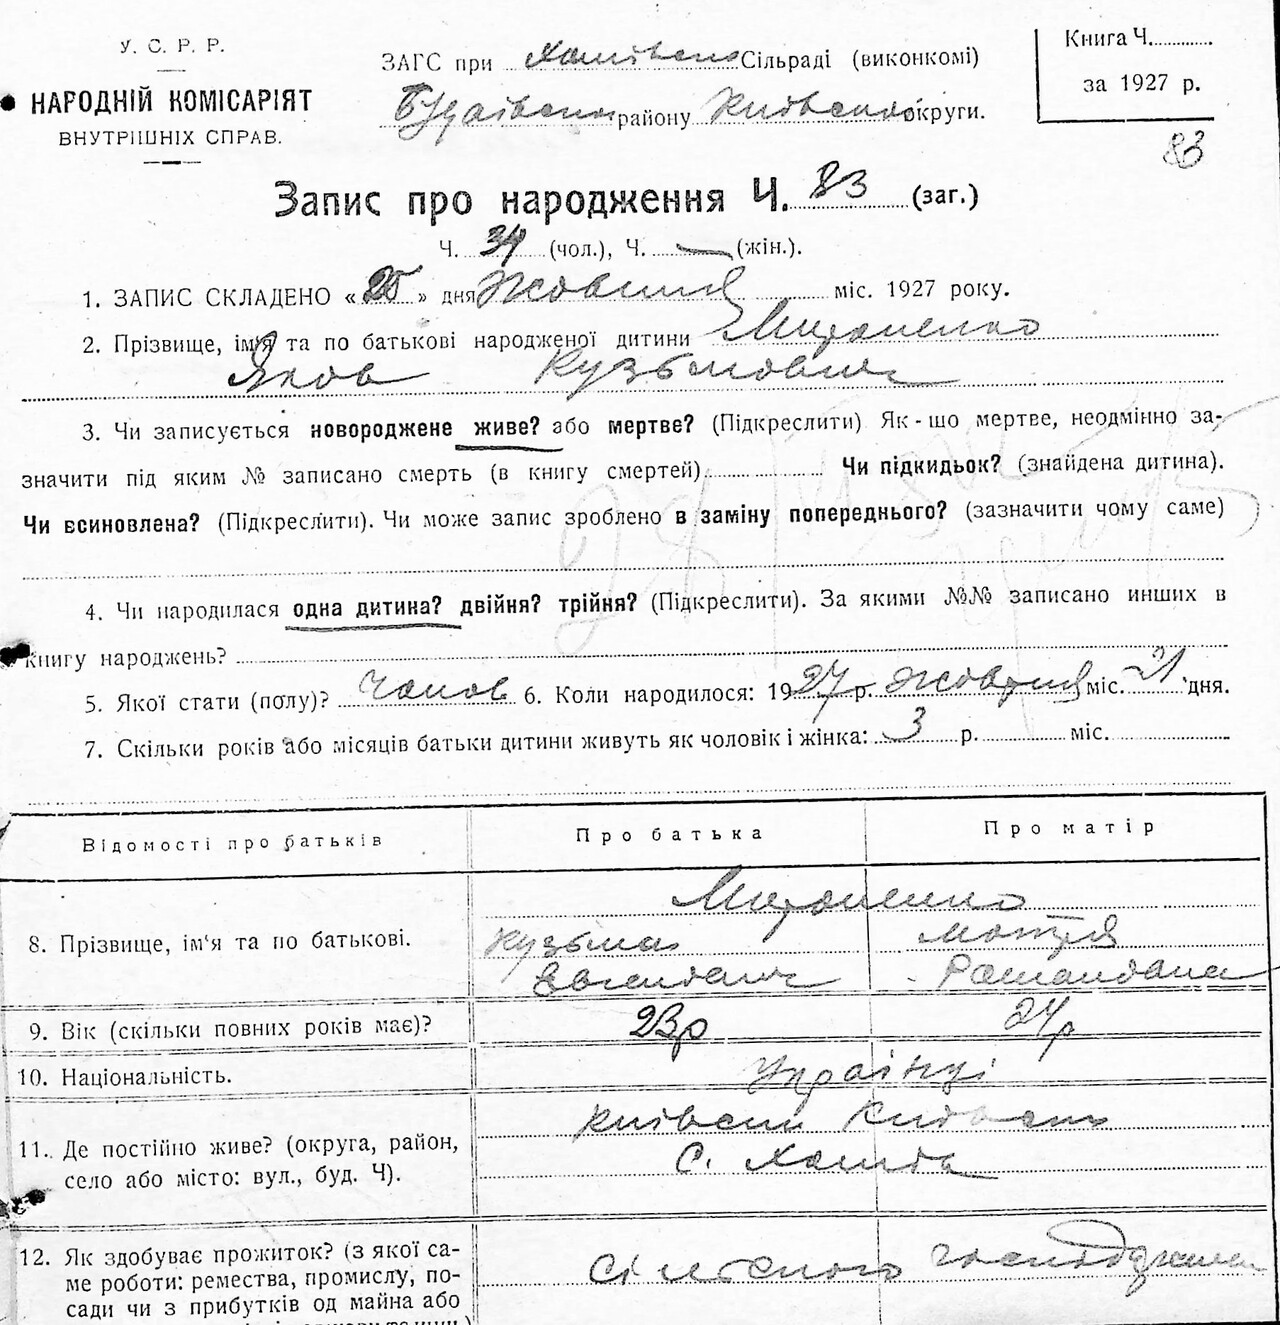 У. С. Р. Р.
НАРОДНІЙ КОМІСАРІЯТ
ВНУТРІШНІХ СПРАВ.
ЗАГС при Сільраді (виконкомі)
району Київської округи.
Книга Ч.
за 1927 р.
83
Запис про народження Ч. 83 (заг.)
Ч. 34 (чол.), Ч. — (жін.).
1. ЗАПИС СКЛАДЕНО «25» дня Жовтня міс. 1927 року.
2. Прізвище, ім'я та по батькові народженої дитини Мироненко
Яков Кузьмович
3. Чи записується новороджене живе? або мертве? (Підкреслити) Як-шо мертве, неодмінно за-
значити під яким № записано смерть (в книгу смертей) Чи підкидьок? (знайдена дитина).
Чи всиновлена? (Підкреслити). Чи може запис зроблено в заміну попереднього? (зазначити чому саме)
4. Чи народилася одна дитина? двійня? трійня? (Підкреслити). За якими №№ записано инших в
книгу народжень?
5. Якої стати (полу)? Чолов 6. Коли народилося: 1927 р. Жовтня міс. 21 дня.
7. Скільки років або місяців батьки дитини живуть як чоловік і жінка: 3 р. міс.
Відомості про батьків Про батька Про матір
Мироненко
8. Прізвище, ім'я та по батькові. Кузьма Мотря
9. Вік (скільки повних років має)? 23р 24р
10. Національність. Українці
11. Де постійно живе? (округа, район,
село або місто: вул., буд. Ч).
с.
12. Як здобуває прожиток? (з якої са-
ме роботи: ремества, промислу, по-
сади чи з прибутків од майна або